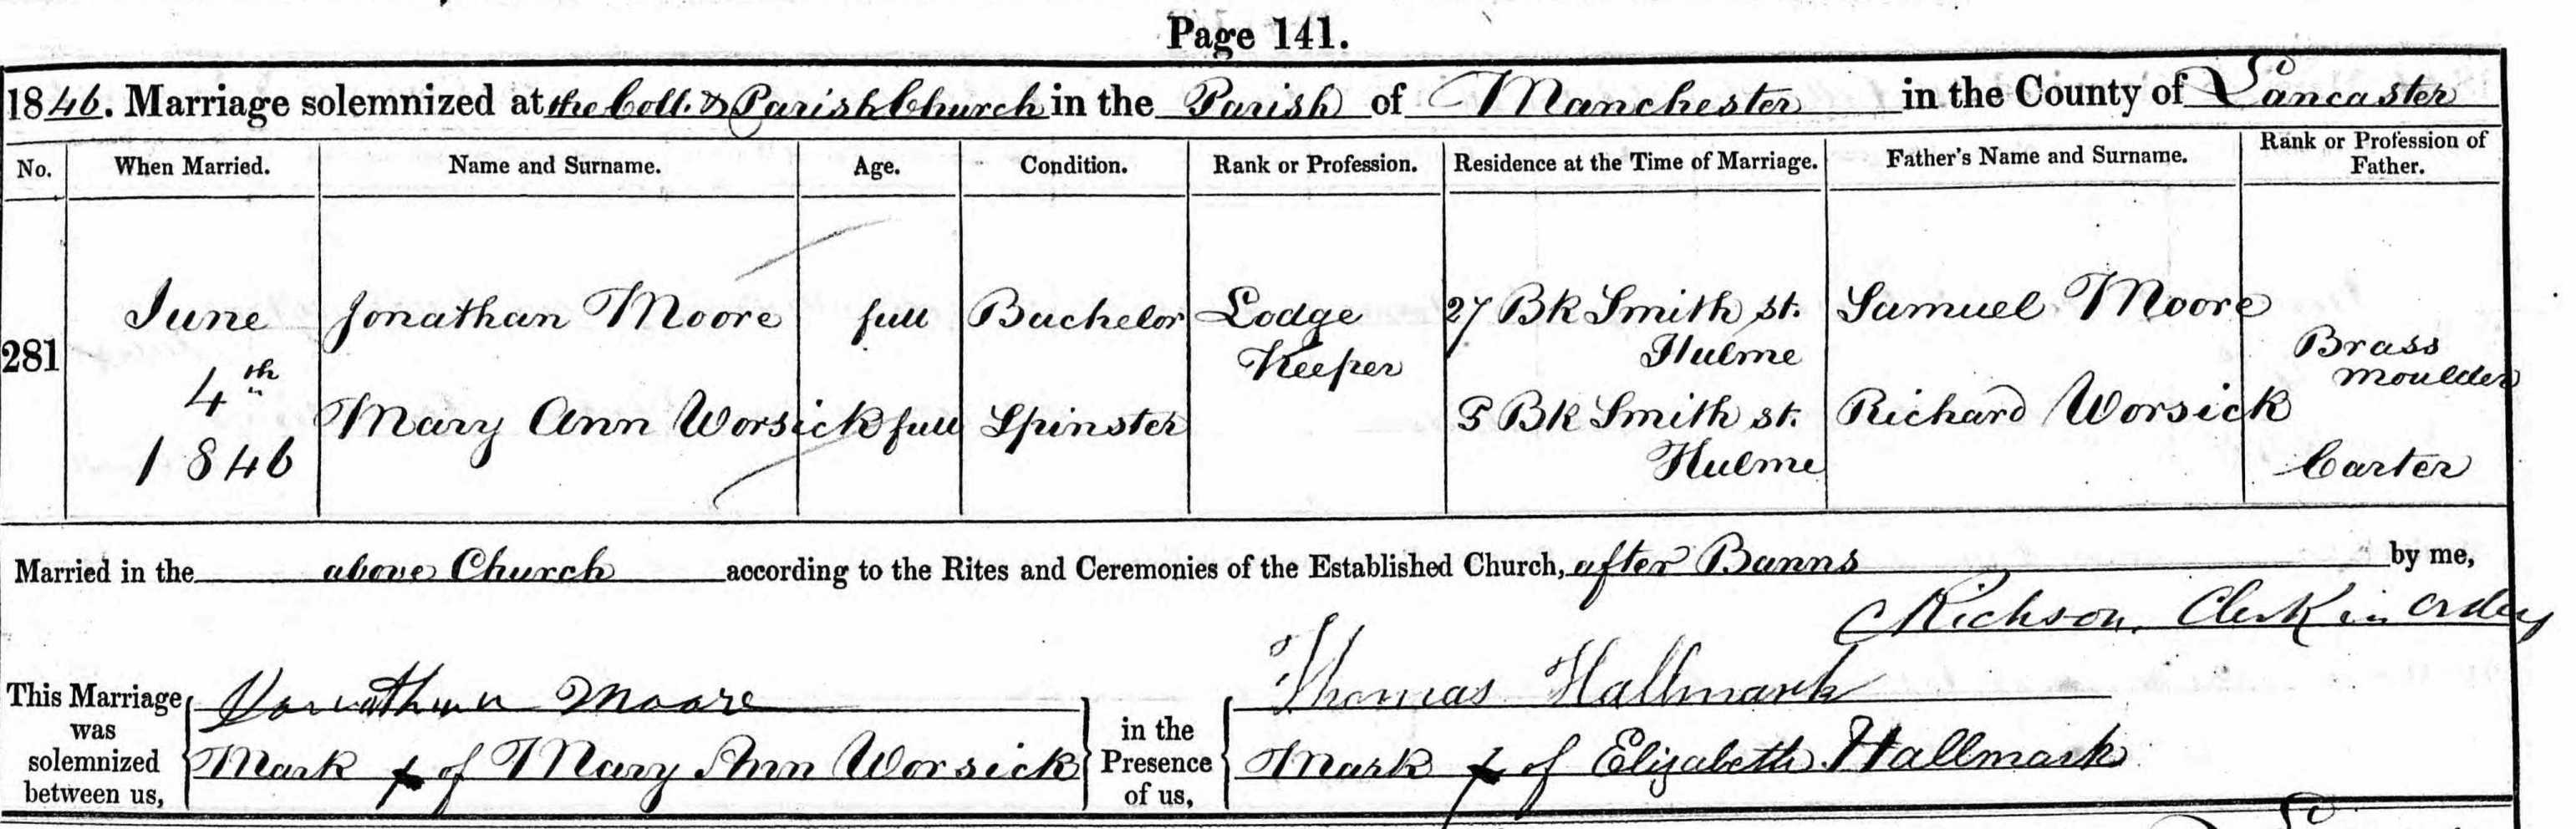 Page 141.
1846. Marriage solemnized at the Coll. & Parish Church in the Parish of Manchester in the County of Lancaster
No. When Married. Name and Surname. Age. Condition. Rank or Profession. Residence at the Time of Marriage. Father's Name and Surname. Rank or Profession of Father.
281
June 4th 1846
Jonathan Moore full Bachelor Lodge Keeper 27 Bk Smith st. Hulme Samuel Moore Brass moulder
Mary Ann Worsick full Spinster 5 Bk Smith st. Hulme Richard Worsick Carter
Married in the above Church according to the Rites and Ceremonies of the Established Church, after Banns by me,
C Richson, Clerk in orders
This Marriage was solemnized between us,
Jonathan Moore
Mark x of Mary Ann Worsick
in the Presence of us,
Thomas Hallmark
Mark x of Elizabeth Hallmark